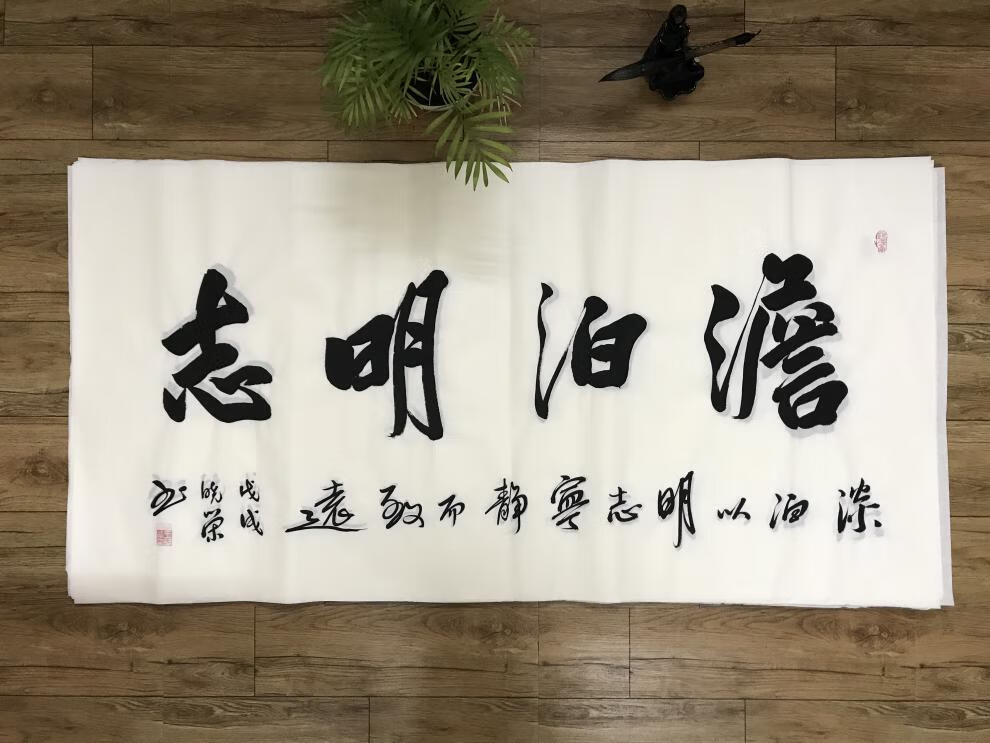 澹泊明志
淡泊以明志寧静而致遠
戊戌
晓荣
书